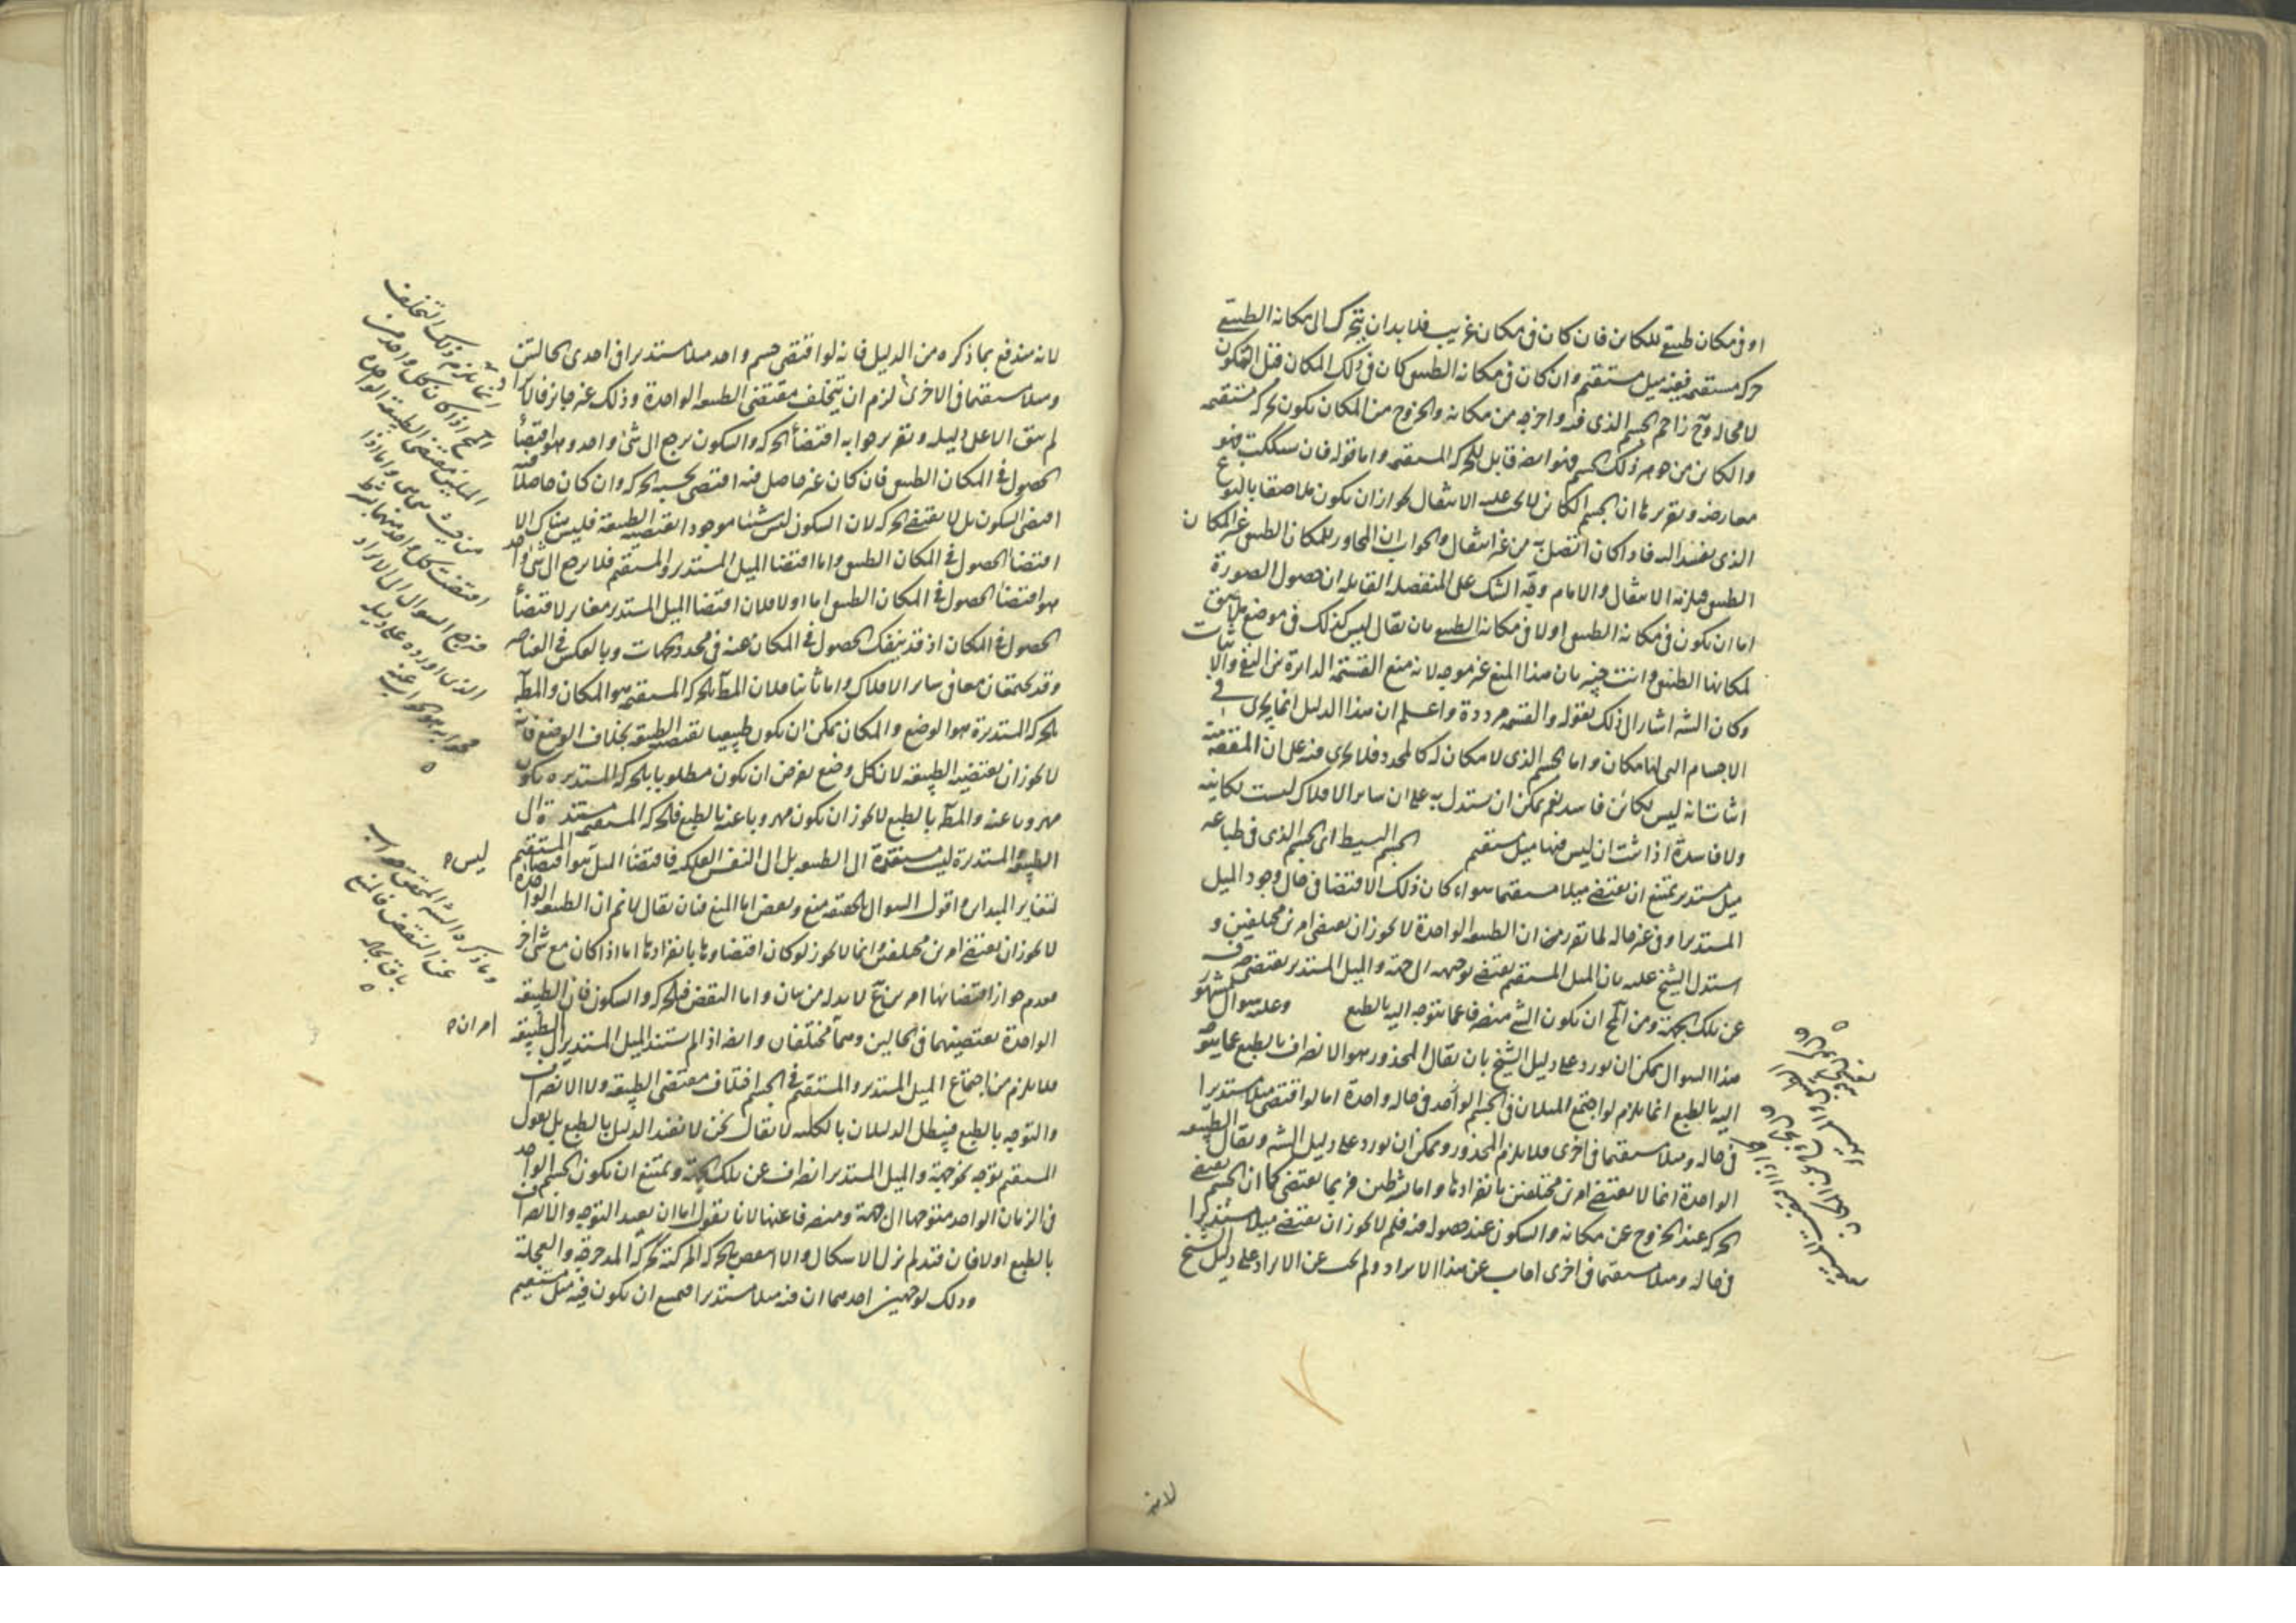 او فى مكان طبيعى للكائن فان كان فى مكان غريب فلا بد ان يتحرك الى مكانه الطبيعى
حركة مستقيمة ففيه ميل مستقيم وان كان فى مكانه الطبيعى كان فى ذلك المكان قبل التكون
لا محالة وح زاحم الجسم الذى فيه واخرجه من مكانه والخروج من المكان يكون بحركة مستقيمة
والكائن من جوهر ذلك الجسم فهو ايضا قابل للحركة المستقيمة واما قوله فان سككت فهو
معارضة وتقريرها ان الجسم الكائن لا يجب عليه الانتقال لجواز ان يكون ملاصقا بالنوع
الذى يفسد اليه فاذا كان اتصل به من غير انتقال والجواب ان المجاور للمكان الطبيعى غير المكان
الطبيعى فيلزمه الانتقال والامام وجّه الشك على المنفصلة القايلة ان حصول الصورة
اما ان يكون فى مكانه الطبيعى او لا فى مكانه الطبيعى بان يقال ليس كذلك فى موضع ملاصق
لمكانها الطبيعى وانت خبير بان هذا المنع غير موجه لانه منع القسمة الدايرة بين النفى والاثبات
وكان الشه اشار الى ذلك بقوله والقسمة مرددة واعلم ان هذا الدليل انما يجرى فى
الاجسام التى لها مكان واما الجسم الذى لا مكان له كالمحدد فلا يجرى فيه على ان المقدمة
اثباتا انه ليس بكائن فاسد نعم يمكن ان يستدل به على ان ساير الافلاك ليست بكاينة
ولا فاسدة اذا ثبت ان ليس فيها ميل مستقيم الجسم البسيط اى الجسم الذى فى طباعه
ميل مستدير يمتنع ان يقتضى ميلا مستقيما سواء كان ذلك الاقتضا فى حال وجود الميل
المستدير او فى غير حاله لما تقرر من ان الطبيعة الواحدة لا يجوز ان يقتضى امرين مختلفين و
استدل الشيخ عليه بان الميل المستقيم يقتضى توجهه الى جهة والميل المستدير يقتضى صرفه
عن تلك الجهة ومن المح ان يكون الشئ منصرفا عما يتوجه اليه بالطبع وعليه سوال مشهور
هذا السوال يمكن ان يورد على دليل الشيخ بان يقال المحذور هو الانصراف بالطبع عما يتوجه
اليه بالطبع انما يلزم لو اجتمع الميلان فى الجسم الواحد فى حالة واحدة اما لو اقتضى ميلا مستديرا
فى حالة وميلا مستقيما فى اخرى فلا يلزم المحذور ويمكن ان يورد على دليل الشه ويقال الطبيعة
الواحدة انما لا يقتضى امرين مختلفين بانفرادها واما بشرطين فربما يقتضى كما ان الجسم يقتضى
الحركة عند الخروج عن مكانه والسكون عند حصوله فيه فلم لا يجوز ان يقتضى ميلا مستديرا
فى حالة وميلا مستقيما فى اخرى اجاب عن هذا الايراد ولم يجب عن الايراد على دليل الشيخ
لانه
لانه مندفع بما ذكره من الدليل فانه لو اقتضى جسم واحد ميلا مستديرا فى احدى الحالتين
وميلا مستقيما فى الاخرى لزم ان يتخلف مقتضى الطبيعة الواحدة وذلك غير جايز فالايراد
لم يبق الا على دليله وتقرير جوابه اقتضاء الحركة والسكون يرجع الى شئ واحد وهو اقتضاء
الحصول فى المكان الطبيعى فان كان غير حاصل فيه اقتضى بحسبه الحركة وان كان حاصلا فيه
اقتضى السكون بل لا يقتضى الحركة لان السكون ليس شيئا موجودا تقتضيه الطبيعة فليس هناك الا
اقتضاء الحصول فى المكان الطبيعى واما اقتضاء الميل المستدير والمستقيم فلا يرجع الى شئ واحد
هو اقتضاء الحصول فى المكان الطبيعى اما اولا فلان اقتضاء الميل المستدير مغاير لاقتضاء
الحصول فى المكان اذ قد ينفك الحصول فى المكان عنه فى محدد الجهات وبالعكس فى العناصر
وقد يجتمعان معا فى ساير الافلاك واما ثانيا فلان المط بالحركة المستقيمة هو المكان والمط
بالحركة المستديرة هو الوضع والمكان يمكن ان يكون طبيعيا تقتضيه الطبيعة بخلاف الوضع فانه
لا يجوز ان يقتضيه الطبيعة لان كل وضع يفرض ان يكون مطلوبا بالحركة المستديره يكون
مهروبا عنه والمط بالطبع لا يجوز ان يكون مهروبا عنه بالطبع فالحركة المستقيمة مستندة الى
الطبيعة والمستديرة ليست مستندة الى الطبيعة بل الى النفس الفلكية فاقتضاء الميل هو اقتضاء المستقيم
لتغاير المبداين واقول السوال بالحقيقة منع ونقض اما المنع فبان يقال لا نم ان الطبيعة الواحدة
لا يجوز ان يقتضى امرين مختلفين وانما لا يجوز لو كان اقتضاوها بانفرادها اما اذا كان مع شئ اخر
فعدم جواز اقتضائها امرين ح لا بد له من بيان واما النقض فبالحركة والسكون فان الطبيعة
الواحدة تقتضيهما فى الحالين وهما مختلفان وايضا اذا لم يستند الميل المستدير الى الطبيعة
فلا يلزم من اجتماع الميل المستدير والمستقيم فى الجسم اختلاف مقتضى الطبيعة ولا الانصراف
والتوجه بالطبع فيبطل الدليلان بالكلية لا يقال نحن لا نقيد الدليل بالطبع بل نقول
المستقيم توجه نحو جهة والميل المستدير انصراف عن تلك الجهة ويمتنع ان يكون الجسم الواحد
فى الزمان الواحد متوجها الى جهة ومنصرفا عنها لانا نقول اما ان يقيد التوجه والانصراف
بالطبع او لا فان قيد لم يزل الاشكال والا انتقض بالحركة المركبة كحركة المدحرجة والعجلة
وذلك لوجهين احدهما ان فيه ميلا مستديرا فيمتنع ان يكون فيه ميل مستقيم
انما يلزم ذلك التخلف
اذا كان كل واحد من
الميلين مقتضى الطبيعة الواحدة
من حيث هى هى واما اذا
اقتضت كل واحد منهما بشرط
فيرجع السوال الى الايراد
الذى اورده على دليله
فجوابه هو الجواب عنه
ليس
وما ذكره الشه المحقق جواب
عن النقض فالمنع
باق بحاله
امران